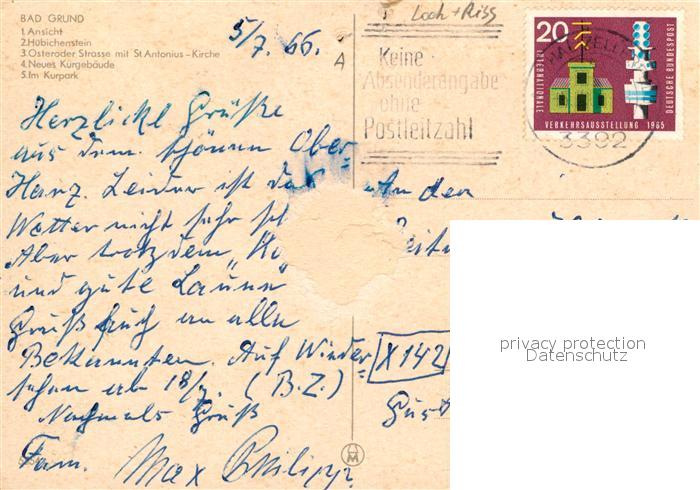 BAD GRUND
1. Ansicht
2. Hübichenstein
3. Osteroder Strasse mit St Antonius-Kirche
4. Neues Kurgebäude
5. Im Kurpark
5/7. 66.
A
Loch + Riss
Keine
Absenderangabe
ohne
Postleitzahl
20
INTERNATIONALE
VERKEHRSAUSSTELLUNG 1965
DEUTSCHE BUNDESPOST
3392
Herzliche Grüße
aus dem schönen Ober-
Harz. Leider ist das
Wetter nicht sehr
Aber trotzdem
und gute Laune"
Gruß auch an alle
Bekannten. Auf Wieder-
sehen ab 18/7. (B.Z.)
Nochmals Gruß
Fam. Max Philipp
An den
X 142
privacy protection
Datenschutz